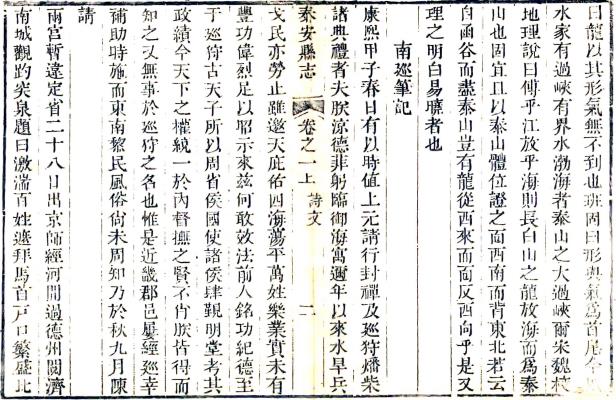 曰龍以其形氣無不到也班固曰形與氣為首尾今
水家有過峽有界水渤海者泰山之大過峽爾宋魏校
地理說曰傅乎江放乎海則長白山之龍放海而為泰
山也固宜且以泰山體位證之面西南而背東北若云
自函谷而盡泰山豈有龍從西來而面反西向乎是又
理之明白易曉者也
南巡筆記
康熙甲子春日有以時值上元請行封禪及巡狩燔柴
諸典禮者夫朕涼德菲躬臨御海寓邇年以來水旱兵
泰安縣志 卷之一上 詩文 二
戈民亦勞止雖邀天庇佑四海蕩平萬姓樂業實未有
豐功偉烈足以昭示來茲何敢效法前人銘功紀德至
于巡狩古天子所以周省侯國使諸侯肆覲明堂考其
政績今天下之權統一於內督撫之賢不肖朕皆得而
知之又無事於巡狩之名也惟是近畿郡邑屢經巡幸
補助時施而東南黎民風俗尚未周知乃於秋九月陳
請
兩宮暫違定省二十八日出京師經河間過德州閱濟
南城觀趵突泉題曰激湍百姓遮拜馬首戶口繁盛北